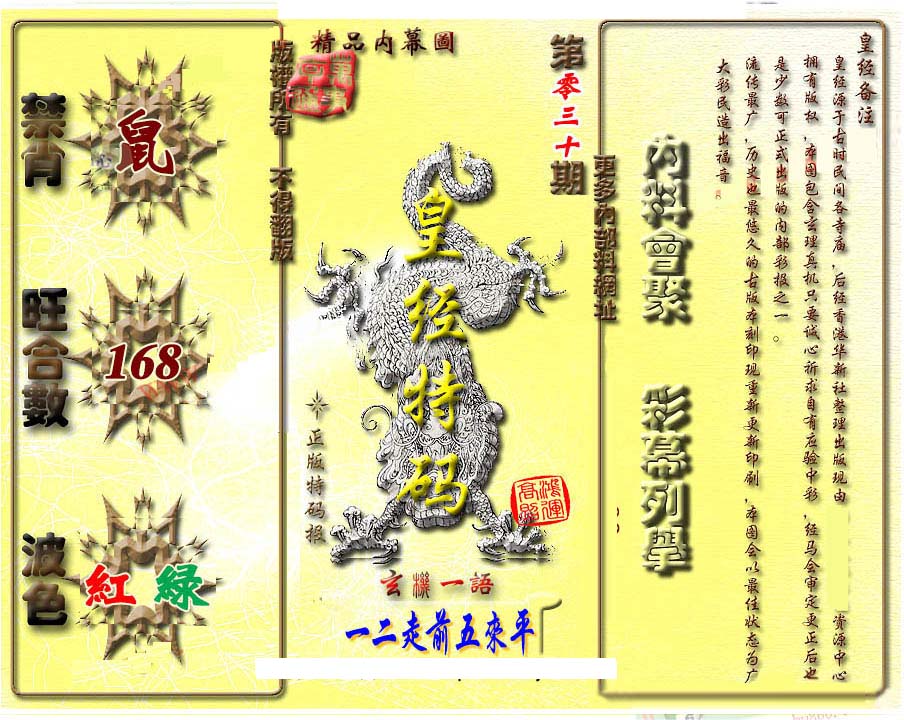 精品内幕圖
版權所有 不得翻版
第零三十期
更多內部料網址
禁肖
鼠
旺合數
168
波色
紅 綠
皇经特码
正版特码报
鴻運高照
玄機一語
一二走前五來平
內料會聚
彩幕列學
皇经备注
皇经源于古时民间各寺庙，后经香港华新社整理出版现由 资源中心
拥有版权，本图包含玄理真机只要诚心祈求自有应验中彩，经马会审定更正后也
是少数可正式出版的内部彩报之一。
流传最广，历史也最悠久的古版本刻印现重新更新印刷，本图会以最佳状态为广
大彩民造出福音